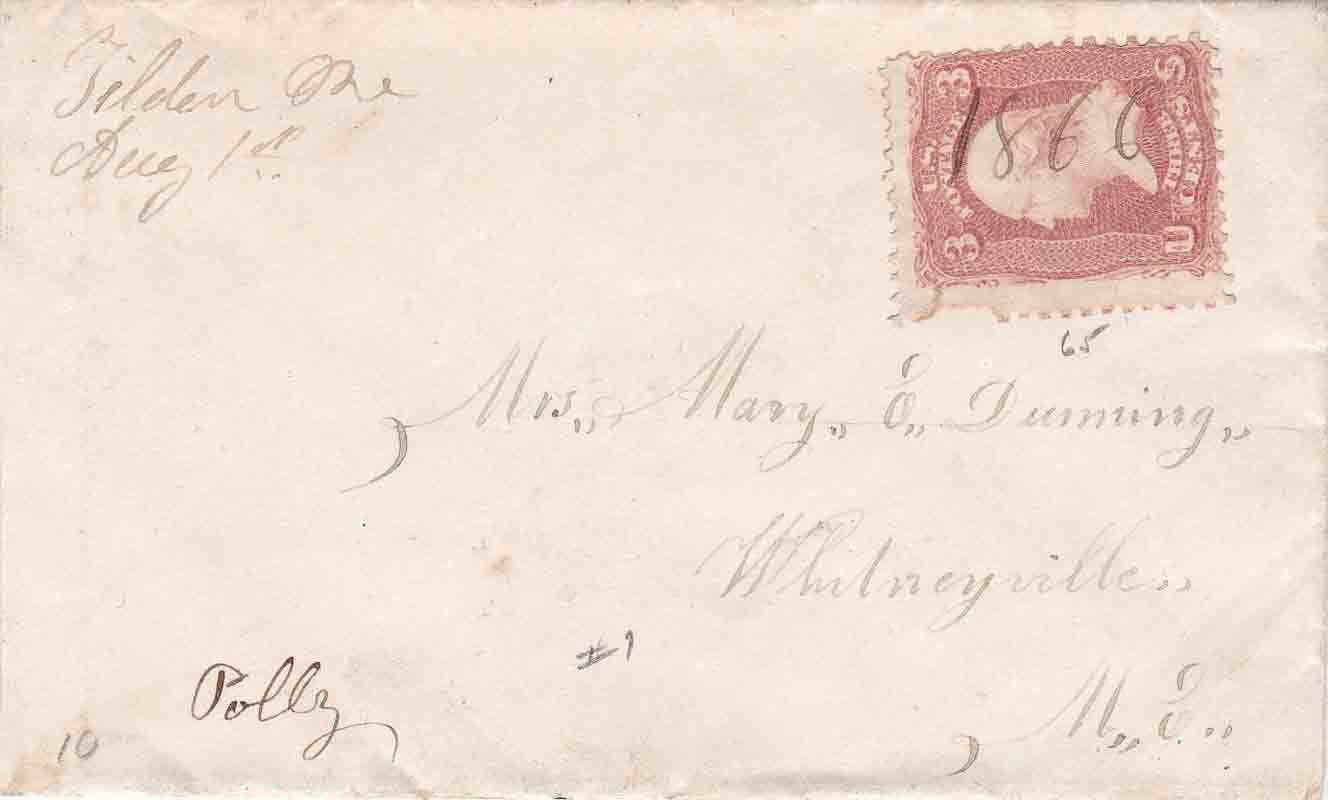 Tilden Me
Aug 1st
1866
3 3
U.S. POSTAGE
THREE CENTS
U S
65
Mrs,, Mary,, E,, Dunning,,
Whitneyville,,
M,, E,,
#9
Polly
10